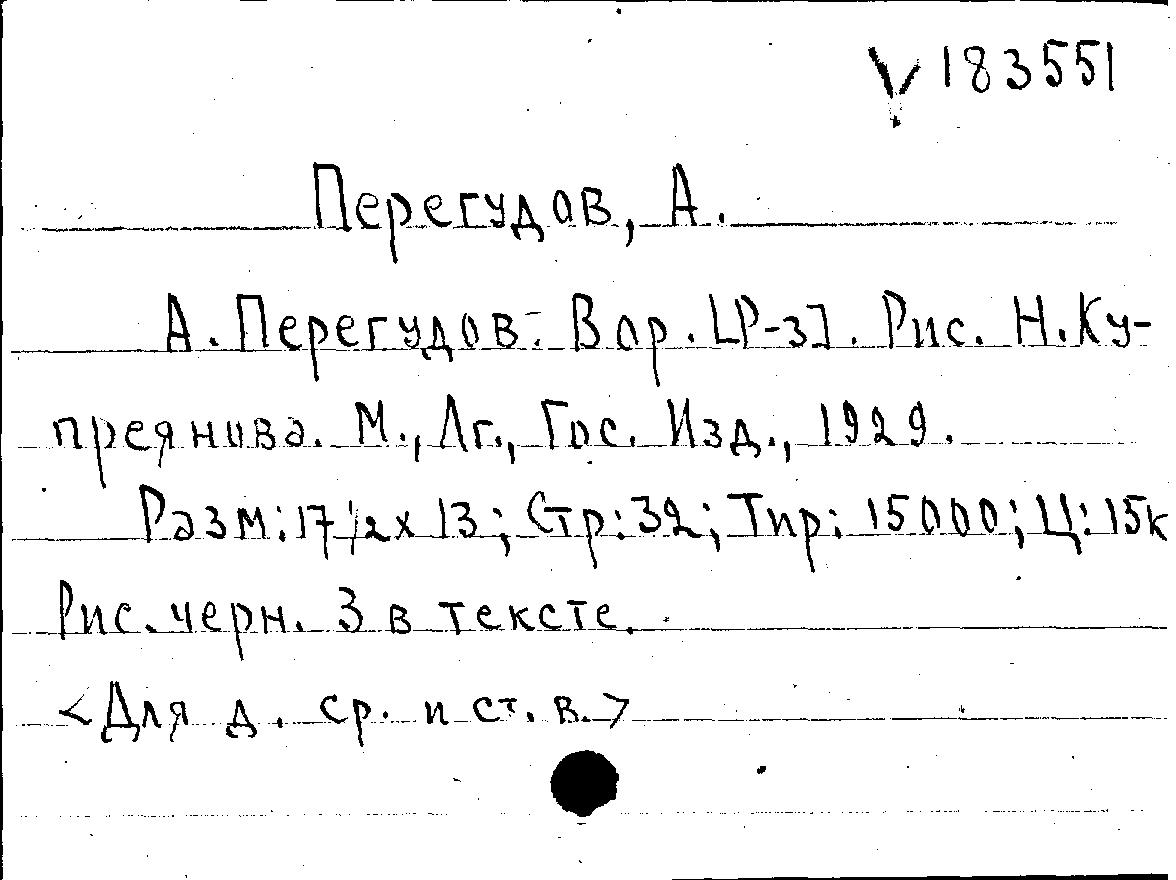 V 183551
Перегудов, А.
А. Перегудов. Вор. [Р-з]. Рис. Н. Ку-
преянова. М., Лг., Гос. Изд., 1929.
Разм: 17 1/2 x 13; Стр: 32; Тир: 15000; Ц: 15к
Рис. черн. 3 в тексте.
<Для д. ср. и ст. в.>